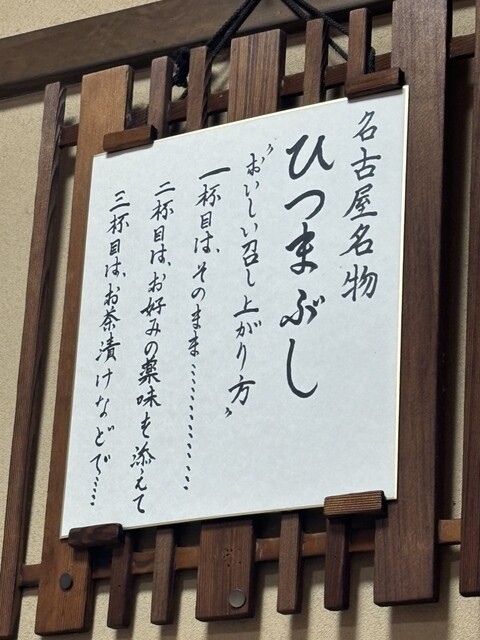 名古屋名物
ひつまぶし
〝おいしい召し上がり方〟
一杯目は、そのまま…………
二杯目は、お好みの薬味を添えて
三杯目は、お茶漬けなどで……